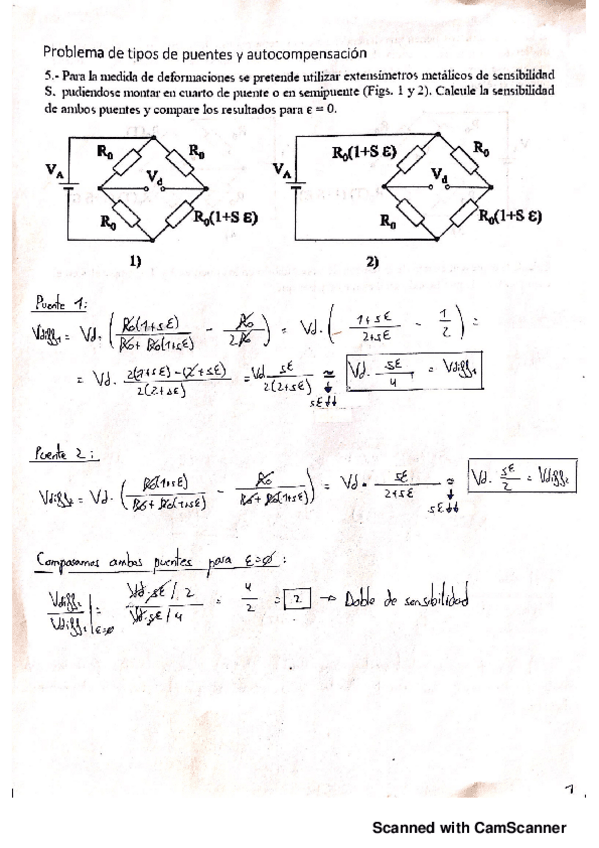 Problema de tipos de puentes y autocompensación
5.- Para la medida de deformaciones se pretende utilizar extensímetros metálicos de sensibilidad
S. pudiendose montar en cuarto de puente o en semipuente (Figs. 1 y 2). Calcule la sensibilidad
de ambos puentes y compare los resultados para ε = 0.
R₀ R₀ R₀(1+S ε) R₀
V_A V_d V_A V_d
R₀ R₀(1+S ε) R₀ R₀(1+S ε)
1) 2)
Puente 1:
Vdiff₁ = Vd. ( R₀(1+sε) / R₀ + R₀(1+sε) - R₀ / 2R₀ ) = Vd. ( 1+sε / 2+sε - 1 / 2 ) =
= Vd. 2(1+sε)-(2+sε) / 2(2+sε) = Vd. sε / 2(2+sε) ≃ Vd. sε / 4 = Vdiff₁
sε↓↓
Puente 2:
Vdiff₂ = Vd. ( R₀(1+sε) / R₀ + R₀(1+sε) - R₀ / R₀ + R₀(1+sε) ) = Vd . sε / 2+sε ≃ Vd. sε / 2 = Vdiff₂
sε↓↓
Comparamos ambos puentes para ε=0:
Vdiff₂ / Vdiff₁ |ε=0 = Vd.sε / 2 / Vd.sε / 4 = 4 / 2 = 2 → Doble de sensibilidad
1
Scanned with CamScanner